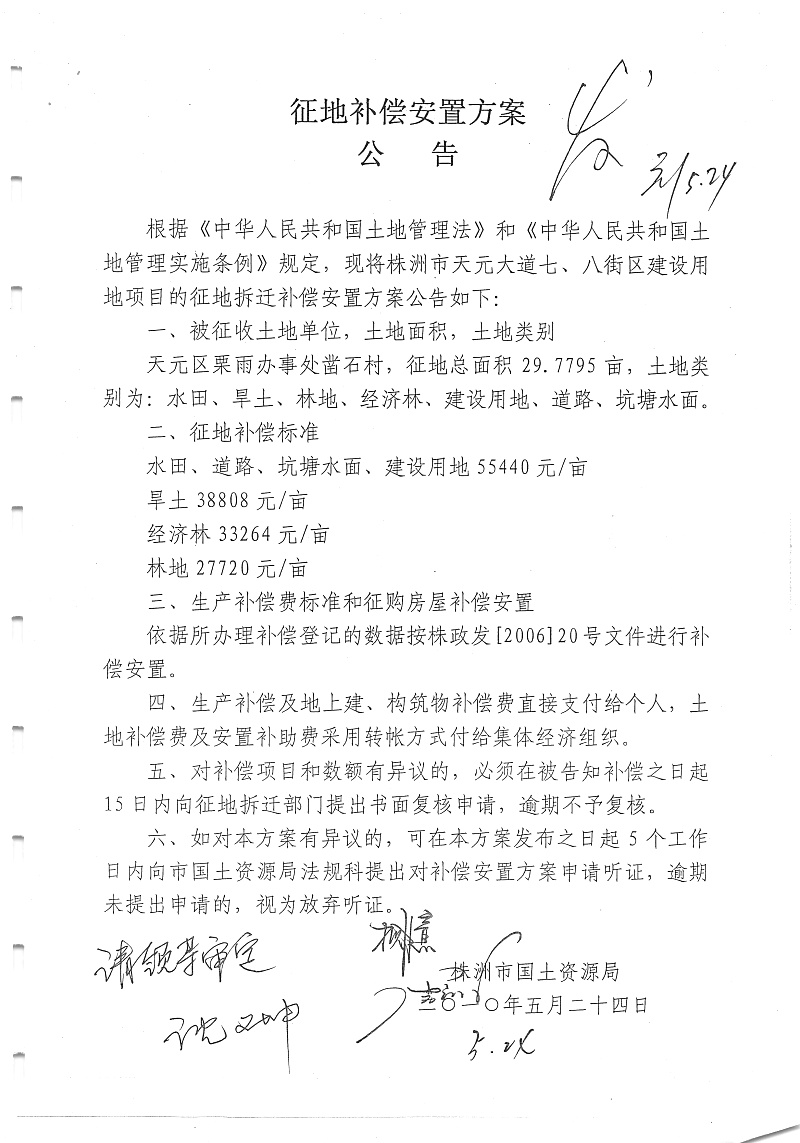 征地补偿安置方案
公 告
发
5.24
根据《中华人民共和国土地管理法》和《中华人民共和国土
地管理实施条例》规定，现将株洲市天元大道七、八街区建设用
地项目的征地拆迁补偿安置方案公告如下：
一、被征收土地单位，土地面积，土地类别
天元区栗雨办事处凿石村，征地总面积 29.7795 亩，土地类
别为：水田、旱土、林地、经济林、建设用地、道路、坑塘水面。
二、征地补偿标准
水田、道路、坑塘水面、建设用地 55440 元/亩
旱土 38808 元/亩
经济林 33264 元/亩
林地 27720 元/亩
三、生产补偿费标准和征购房屋补偿安置
依据所办理补偿登记的数据按株政发[2006]20 号文件进行补
偿安置。
四、生产补偿及地上建、构筑物补偿费直接支付给个人，土
地补偿费及安置补助费采用转帐方式付给集体经济组织。
五、对补偿项目和数额有异议的，必须在被告知补偿之日起
15 日内向征地拆迁部门提出书面复核申请，逾期不予复核。
六、如对本方案有异议的，可在本方案发布之日起 5 个工作
日内向市国土资源局法规科提出对补偿安置方案申请听证，逾期
未提出申请的，视为放弃听证。
请领导审定
株洲市国土资源局
二〇一〇年五月二十四日
5.24